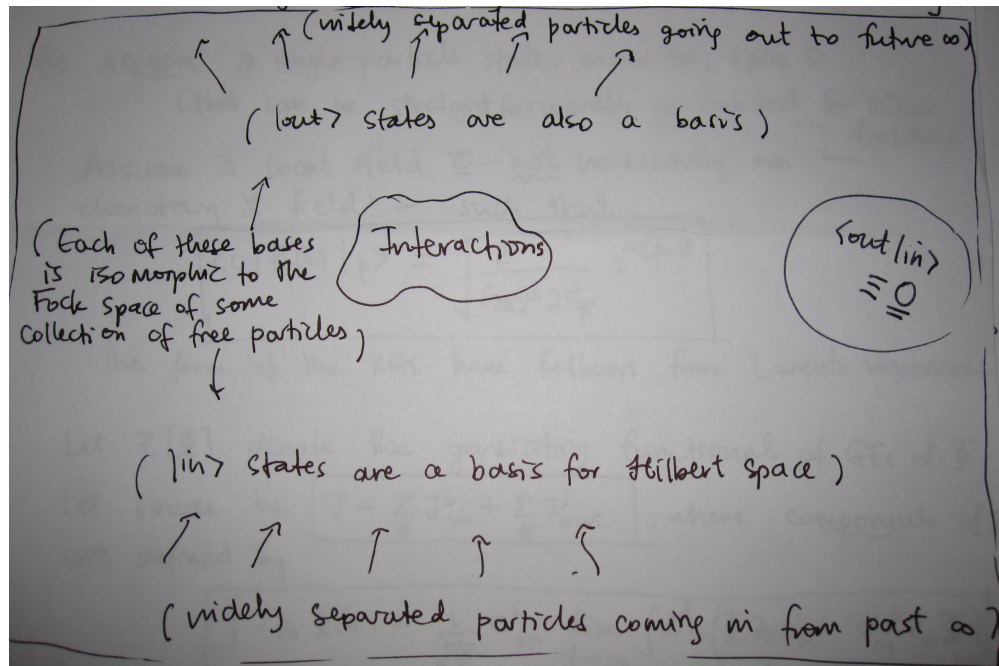 (widely separated particles going out to future ∞)
( |out> states are also a basis )
( Each of these bases
is isomorphic to the
Fock space of some
collection of free particles )
Interactions
<out|in>
≡ O
( |in> states are a basis for Hilbert space )
( widely separated particles coming in from past ∞ )